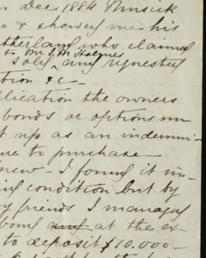 Dec 1884 Musick
& showed me his
therland, who claimed
to Mr. J. M.
oley and requested
tion & c—
lication the owners
bonds or options un
t up as an indemni-
ue to purchase
new — I found it in-
condition but by
y friends I managed
bond at the ex-
to deposit $10.000—